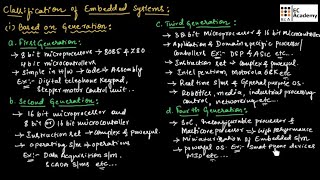 Classification of Embedded Systems:
(i) Based on Generation:
a. First Generation:
8 bit microprocessor → 8085 & Z80
4 bit microcontrollers
Simple in H/w & code → Assembly
Ex:- Digital telephone keypad,
Stepper motor control unit...
b. Second Generation:
16 bit microprocessor and
8 bit or 16 bit microcontroller
Instruction set → complex & powerful.
operating s/m → operations
Ex:- Data acquisition s/m.
SCADA s/ms etc...
c. Third Generation:
32 bit Microprocessor & 16 bit Microcontroller
Application & Domain specific processor/
controllers Ex:- DSP & ASIC etc...
Instruction set → complex & powerful.
Intel pentium, Motorola 68K etc
Real time s/m & General purpose os.
Robotics, media, industrial processing
control, networking etc...
d. Fourth Generation:
SoC, Reconfigurable processor &
Multicore processor → High performance
Miniaturization of Embedded s/m
powerful os Ex:- Smart phone devices
MID etc...
EC Academy